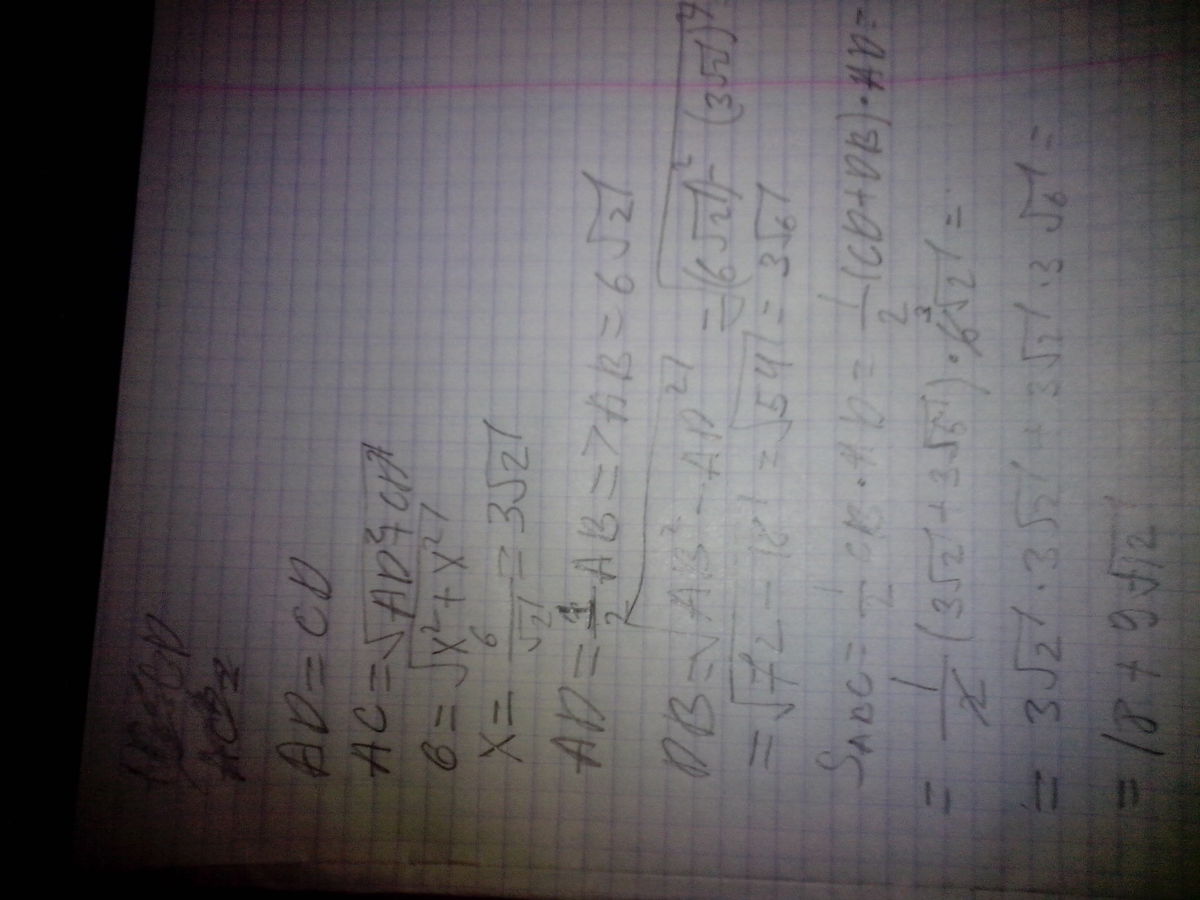 AD = CD
AC = √AD²+CD²
6 = √x²+x²
x = 6/√2 = 3√2
AD = 1/2 AB => AB = 6√2
DB = √AB² - AD² = √(6√2)² - (3√2)²
= √72 - 18 = √54 = 3√6
SABC = 1/2 CB · AD = 1/2 (CD+DB) · AD =
= 1/2 (3√2 + 3√6) · 6 3 √2 =
= 3√2 · 3√2 + 3√2 · 3√6 =
= 18 + 9√12